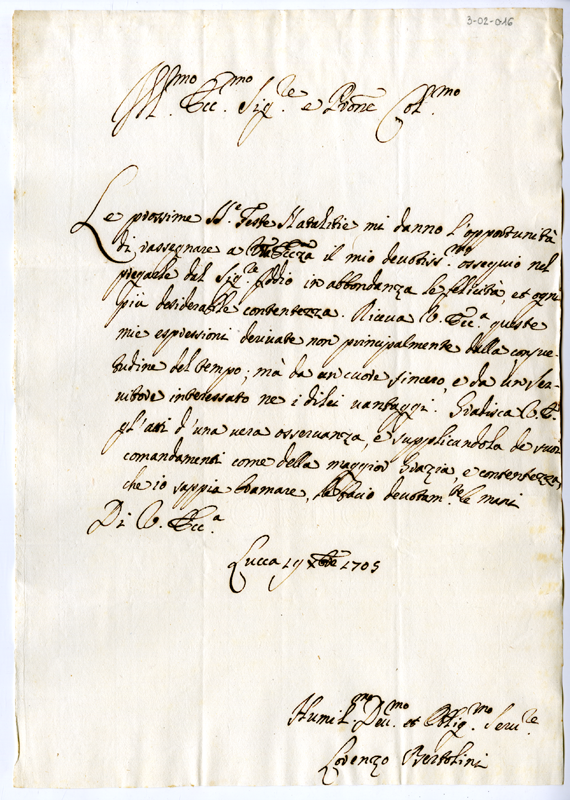 3-02-016
Ill.mo Ecc.mo Sig.re e Pron̄e Col.mo
Le prossime S.te Feste Natalitie mi danno l'opportunità
di rassegnare a il mio devotiss.mo ossequio nel
pregarle dal Sig.re Iddio in abbondanza le felicità, et ogni
più desiderabile contentezza. Riceva V. Ecc.a queste
mie espressioni derivate non principalmente dalla consue-
tudine del tempo; mà da un cuore sincero, e da un ser-
vitore interessato ne i dilei vantaggi. Gradisca V. E.
gl'atti d'una vera osservanza, e supplicandola de suoi
comandamenti come della maggior Grazia, e contentezza,
che io sappia bramare, le bacio devotam.te le mani
Di V. Ecc.a
Lucca 19 Xbre 1705
Humil.mo Dev.mo et Oblig.mo Serv.re
Lorenzo Bertolini